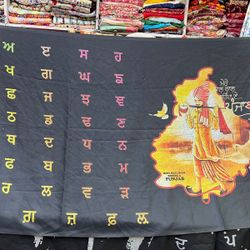 ੳ ੲ ਸ ਹ
ਖ ਗ ਘ ਙ
ਛ ਜ ਝ ਞ
ਠ ਡ ਢ ਣ
ਥ ਦ ਧ ਨ
ਫ ਬ ਭ ਮ
ਰ ਲ ਵ ੜ
ਗ਼ ਜ਼ ਫ਼ ਲ਼
PUNJAB